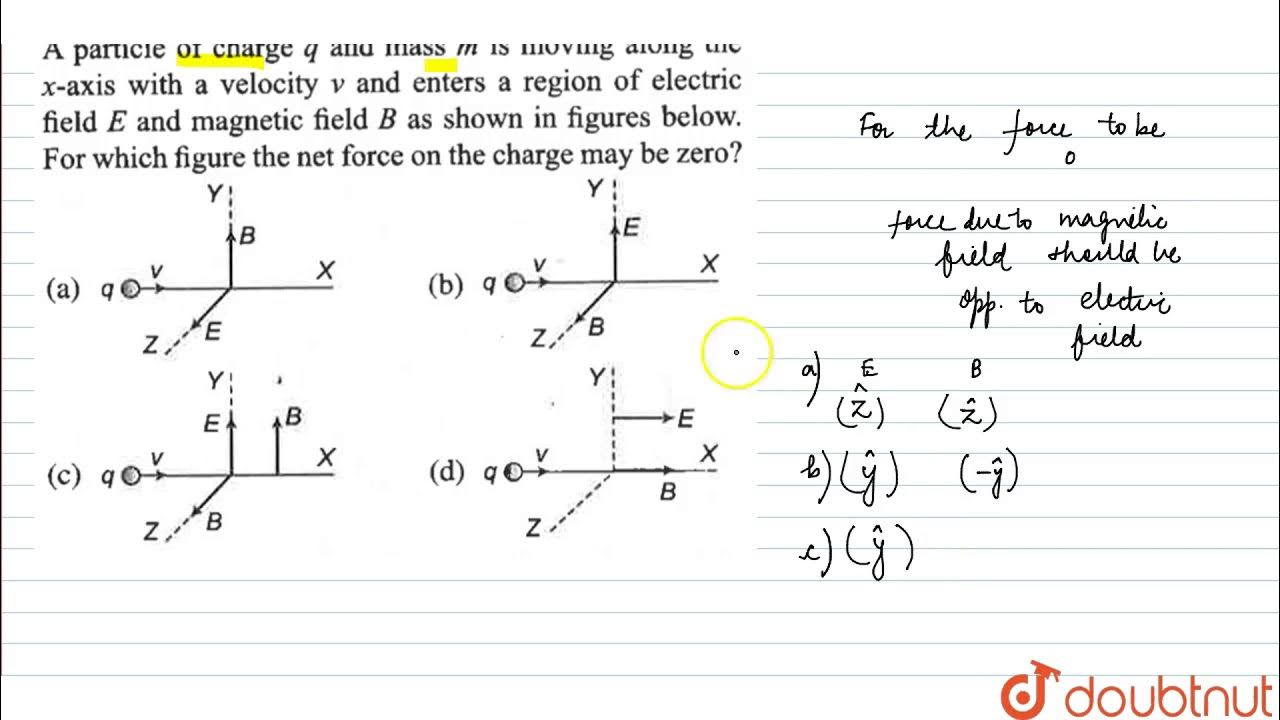 A particle of charge q and mass m is moving along the
x-axis with a velocity v and enters a region of electric
field E and magnetic field B as shown in figures below.
For which figure the net force on the charge may be zero?
(a) q v Y B X Z E
(b) q v Y E X Z B
(c) q v Y E B X Z B
(d) q v Y E X B Z
For the force to be
0
force due to magnetic
field should be
opp. to electric
field
a) E B
(ẑ) (ẑ)
b) (ŷ) (-ŷ)
c) (ŷ)
doubtnut